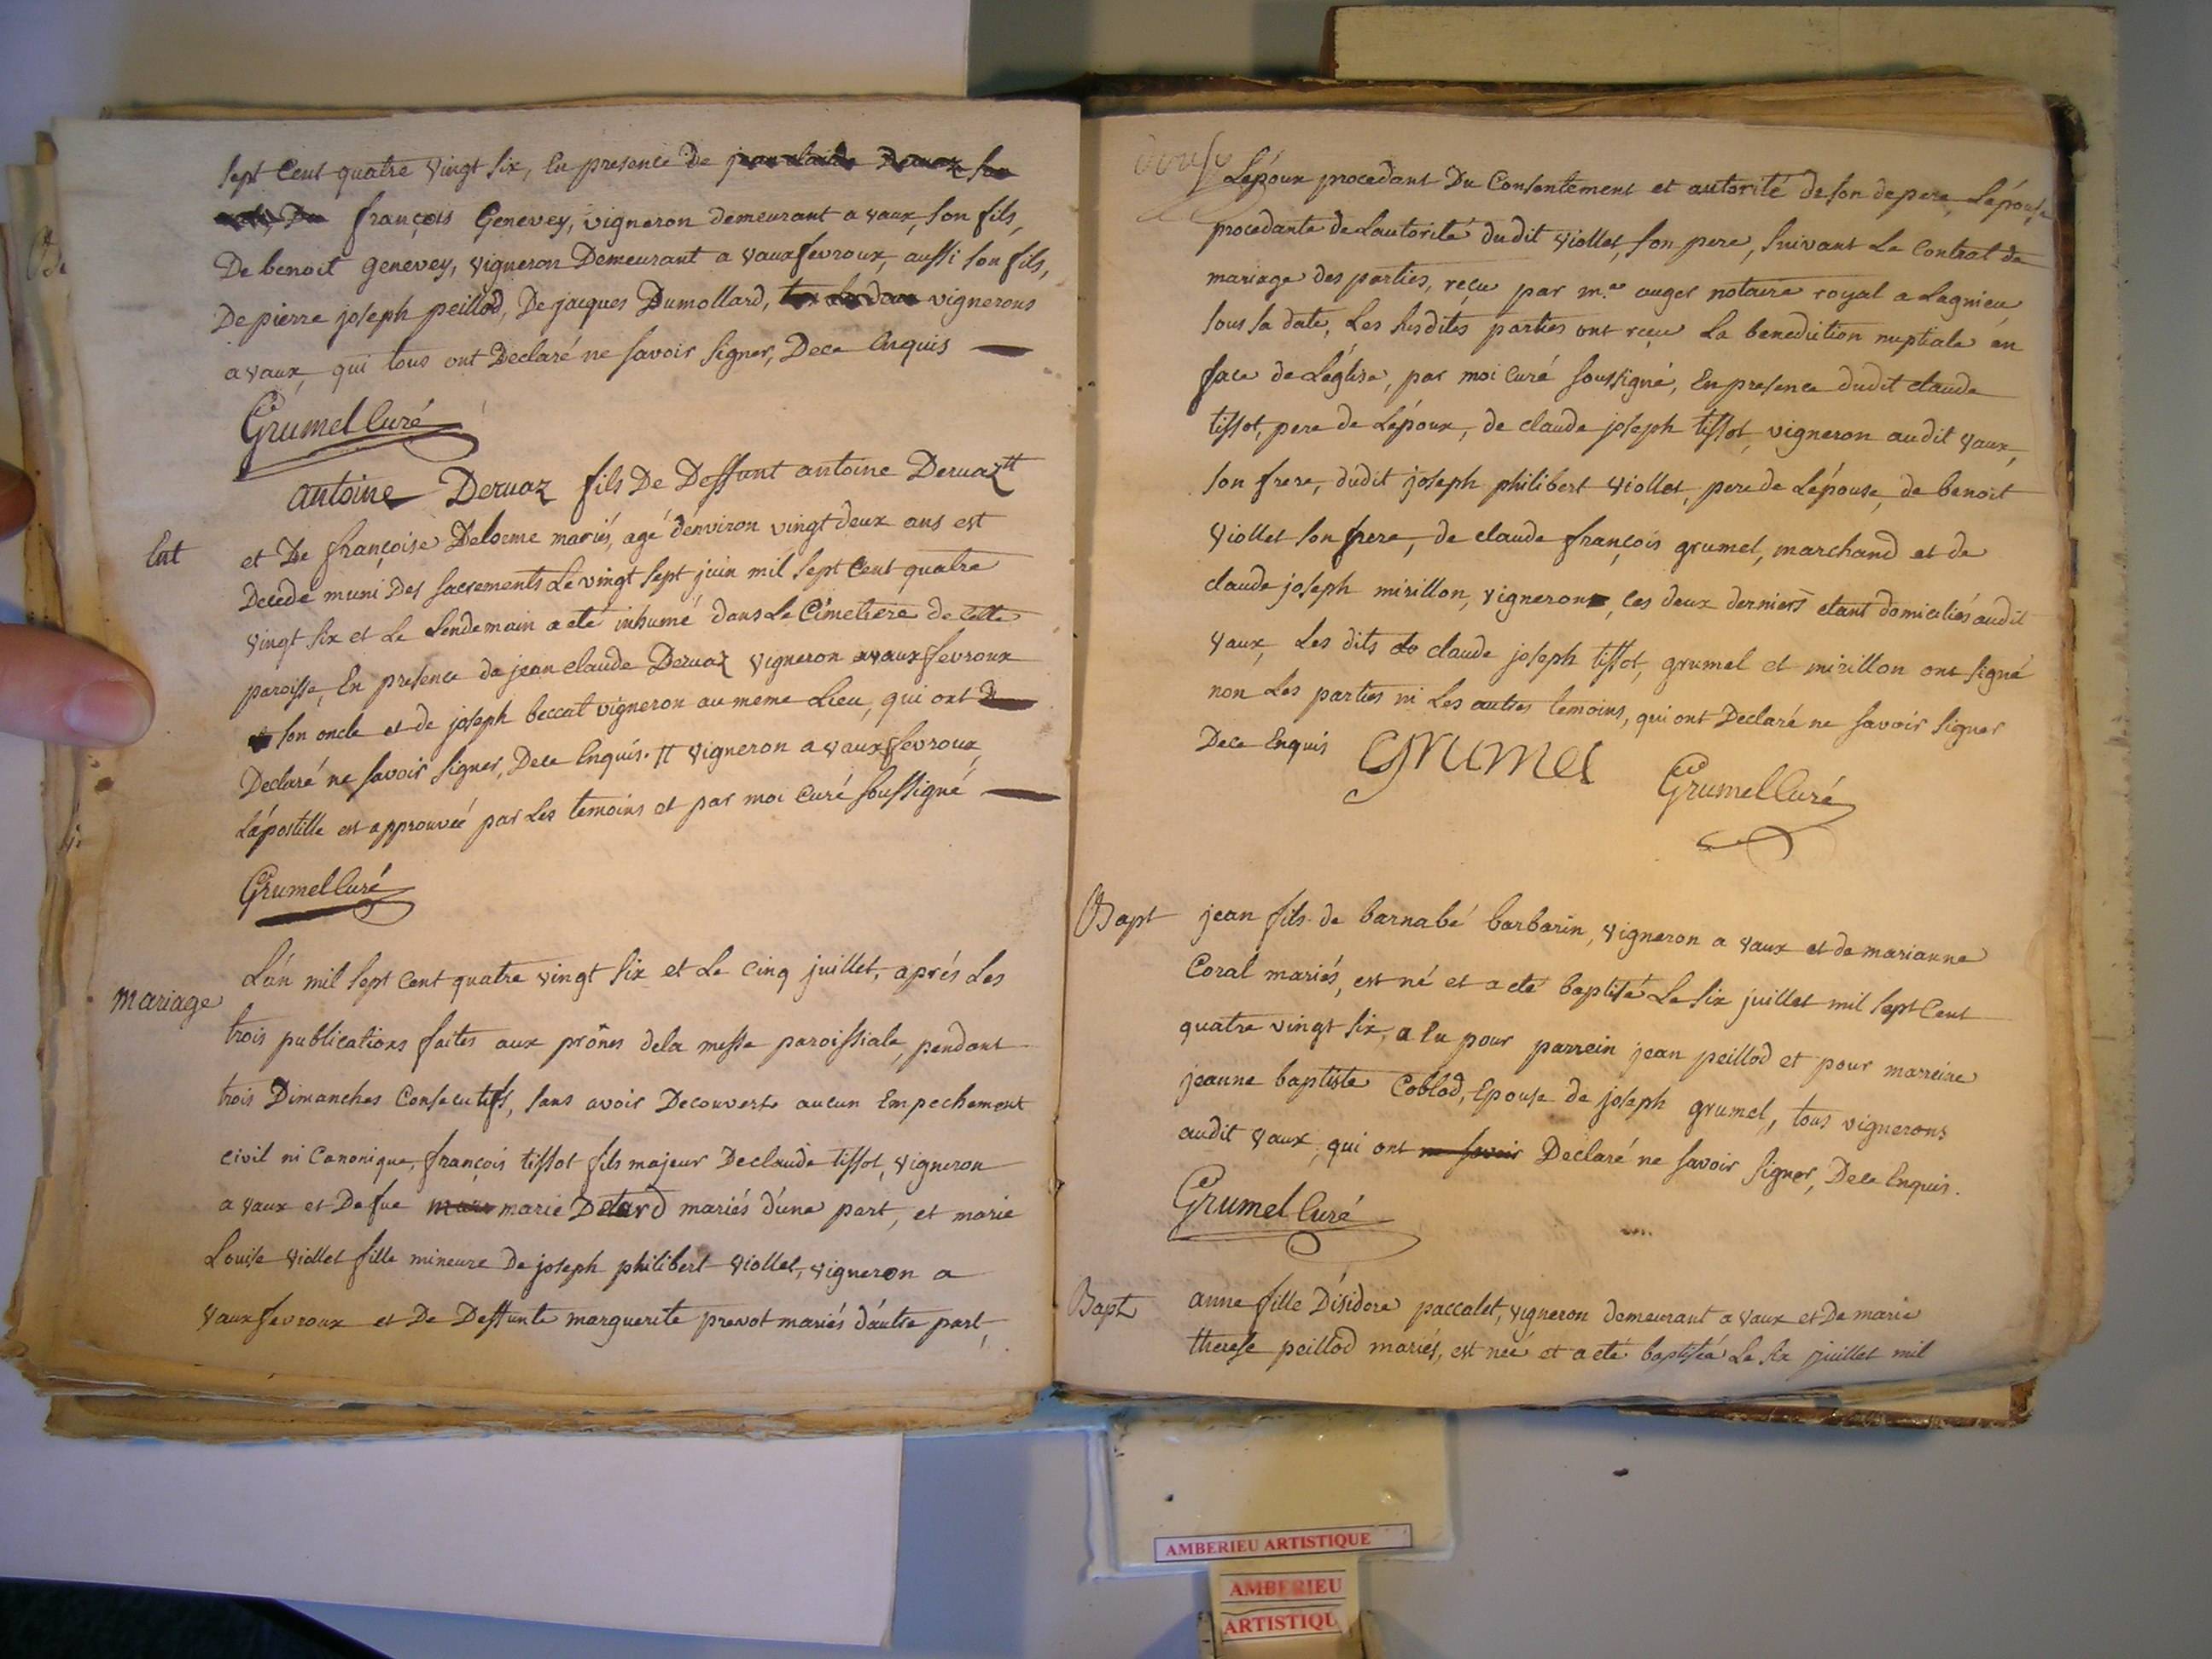 sept Cent quatre vingt six, En presence de jean claude Dervaz son
De françois Genevey, vigneron demeurant a vaux, son fils,
De benoit genevey, vigneron Demeurant a vauxfevroux, aussi son fils,
De pierre joseph peillod, De jacques Dumollard, vignerons
a vaux, qui tous ont Declaré ne savoir signer, Dece Enquis
Grumel Curé
antoine Dervaz fils De Deffunt antoine Dervaz #
Ent
et De françoise Delorme mariés, agé d'environ vingt deux ans est
Decedé muni Des sacrements Le vingt sept juin mil sept Cent quatre
vingt six et Le Lendemain a eté inhumé dans Le Cimetiere de Cette
paroisse, En presence de jean claude Dervaz vigneron a vauxfevroux
son oncle et de joseph beccat vigneron au meme Lieu, qui ont
Declaré ne savoir signer, Dece Enquis. # vigneron a vauxfevroux,
L'apostille est approuvée par Les temoins et par moi Curé soussigné
Grumel Curé
mariage
L'an mil sept Cent quatre vingt six et Le Cinq juillet, aprés Les
trois publications faites aux prônes dela messe paroissiale, pendant
trois Dimanches Consecutifs, sans avoir Decouvert aucun Empechement
civil ni Canonique, françois tissot fils majeur De claude tissot, vigneron
a vaux et De fue marie Detard mariés d'une part, et marie
Louise viollet fille mineure De joseph philibert viollet, vigneron a
vauxfevroux et De Deffunte marguerite prevot mariés d'autre part,
L'époux procedant Du Consentement et autorité de son de pere, L'épouse
procedante de L'autorité dudit viollet, son pere, suivant Le Contrat de
mariage des parties, reçu par m.e auger notaire royal a Lagnieu
sous sa date, Les susdites parties ont reçu La benediction nuptiale en
face de L'église, par moi Curé soussigné, En presence dudit claude
tissot, pere de L'époux, de claude joseph tissot, vigneron audit vaux,
son frere, dudit joseph philibert viollet, pere de L'épouse, de benoit
viollet son frere, de claude françois grumel, marchand et de
claude joseph mirillon, vigneron, ces deux derniers etant domiciliés audit
vaux, Les dits claude joseph tissot, grumel et mirillon ont signé
non Les parties ni Les autres temoins, qui ont Declaré ne savoir signer
Dece Enquis Grumel Grumel Curé
Bapt
jean fils de barnabé barbarin, vigneron a vaux et de marianne
Coral mariés, est né et a eté baptisé Le six juillet mil sept Cent
quatre vingt six, a Eu pour parrein jean peillod et pour marreine
jeanne baptiste Coblod, Epouse de joseph grumel, tous vignerons
audit vaux, qui ont ne savoir Declaré ne savoir signer, Dece Enquis.
Grumel Curé
Bapt
anne fille D'isidore paccalet, vigneron demeurant a vaux et De marie
therese peillod mariés, est née et a eté baptisée Le six juillet mil
AMBERIEU ARTISTIQUE
AMBERIEU
ARTISTIQU